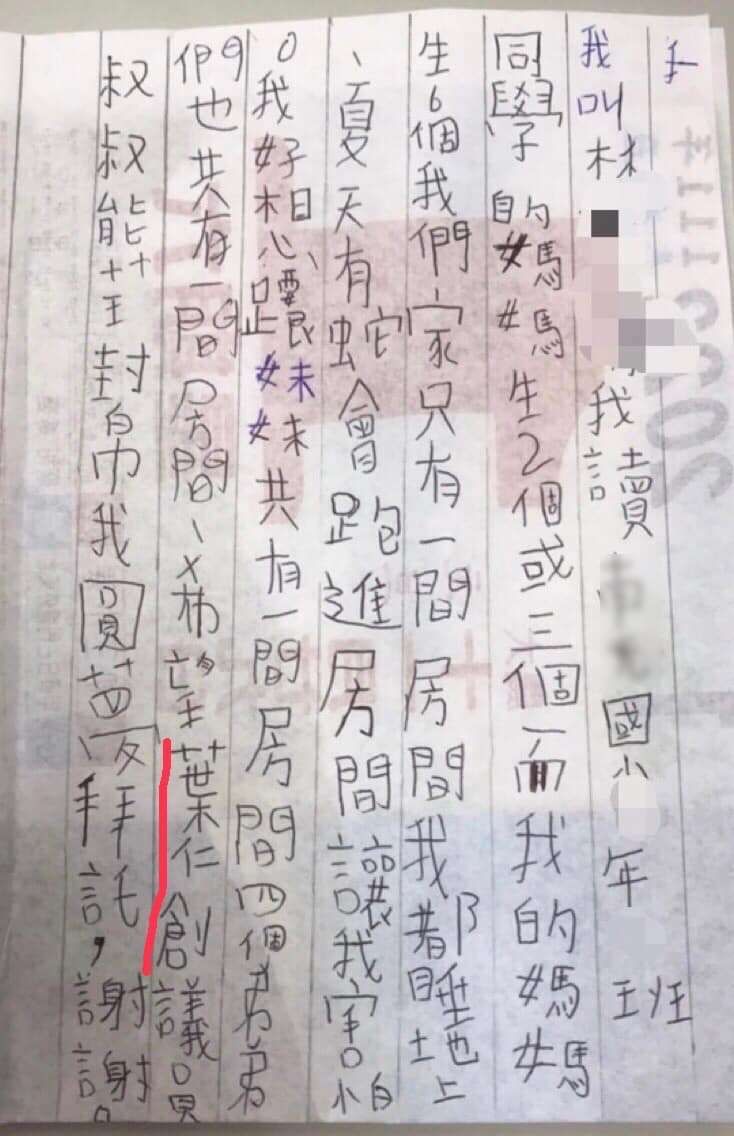 我叫林我讀國小年班
同學的媽媽生2個或三個而我的媽媽
生6個我們家只有一間房間我都睡地上
、夏天有蛇會跑進房間讓我害怕
。我好想跟妹妹共有一間房間四個弟弟
們也共有一間房間、希望葉仁創議員
叔叔能幫我圓夢、拜託,謝謝。